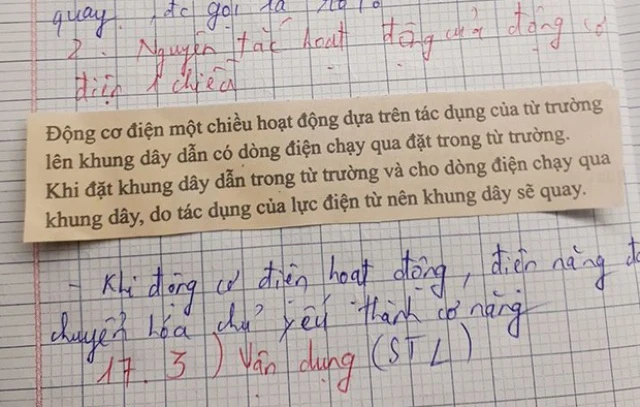 quay, đc gọi là
2. Nguyên tắc hoạt động của động cơ
điện 1 chiều
Động cơ điện một chiều hoạt động dựa trên tác dụng của từ trường
lên khung dây dẫn có dòng điện chạy qua đặt trong từ trường.
Khi đặt khung dây dẫn trong từ trường và cho dòng điện chạy qua
khung dây, do tác dụng của lực điện từ nên khung dây sẽ quay.
- Khi động cơ điện hoạt động, điện năng đc
chuyển hóa chủ yếu thành cơ năng
17. 3) Vận dụng (STL)